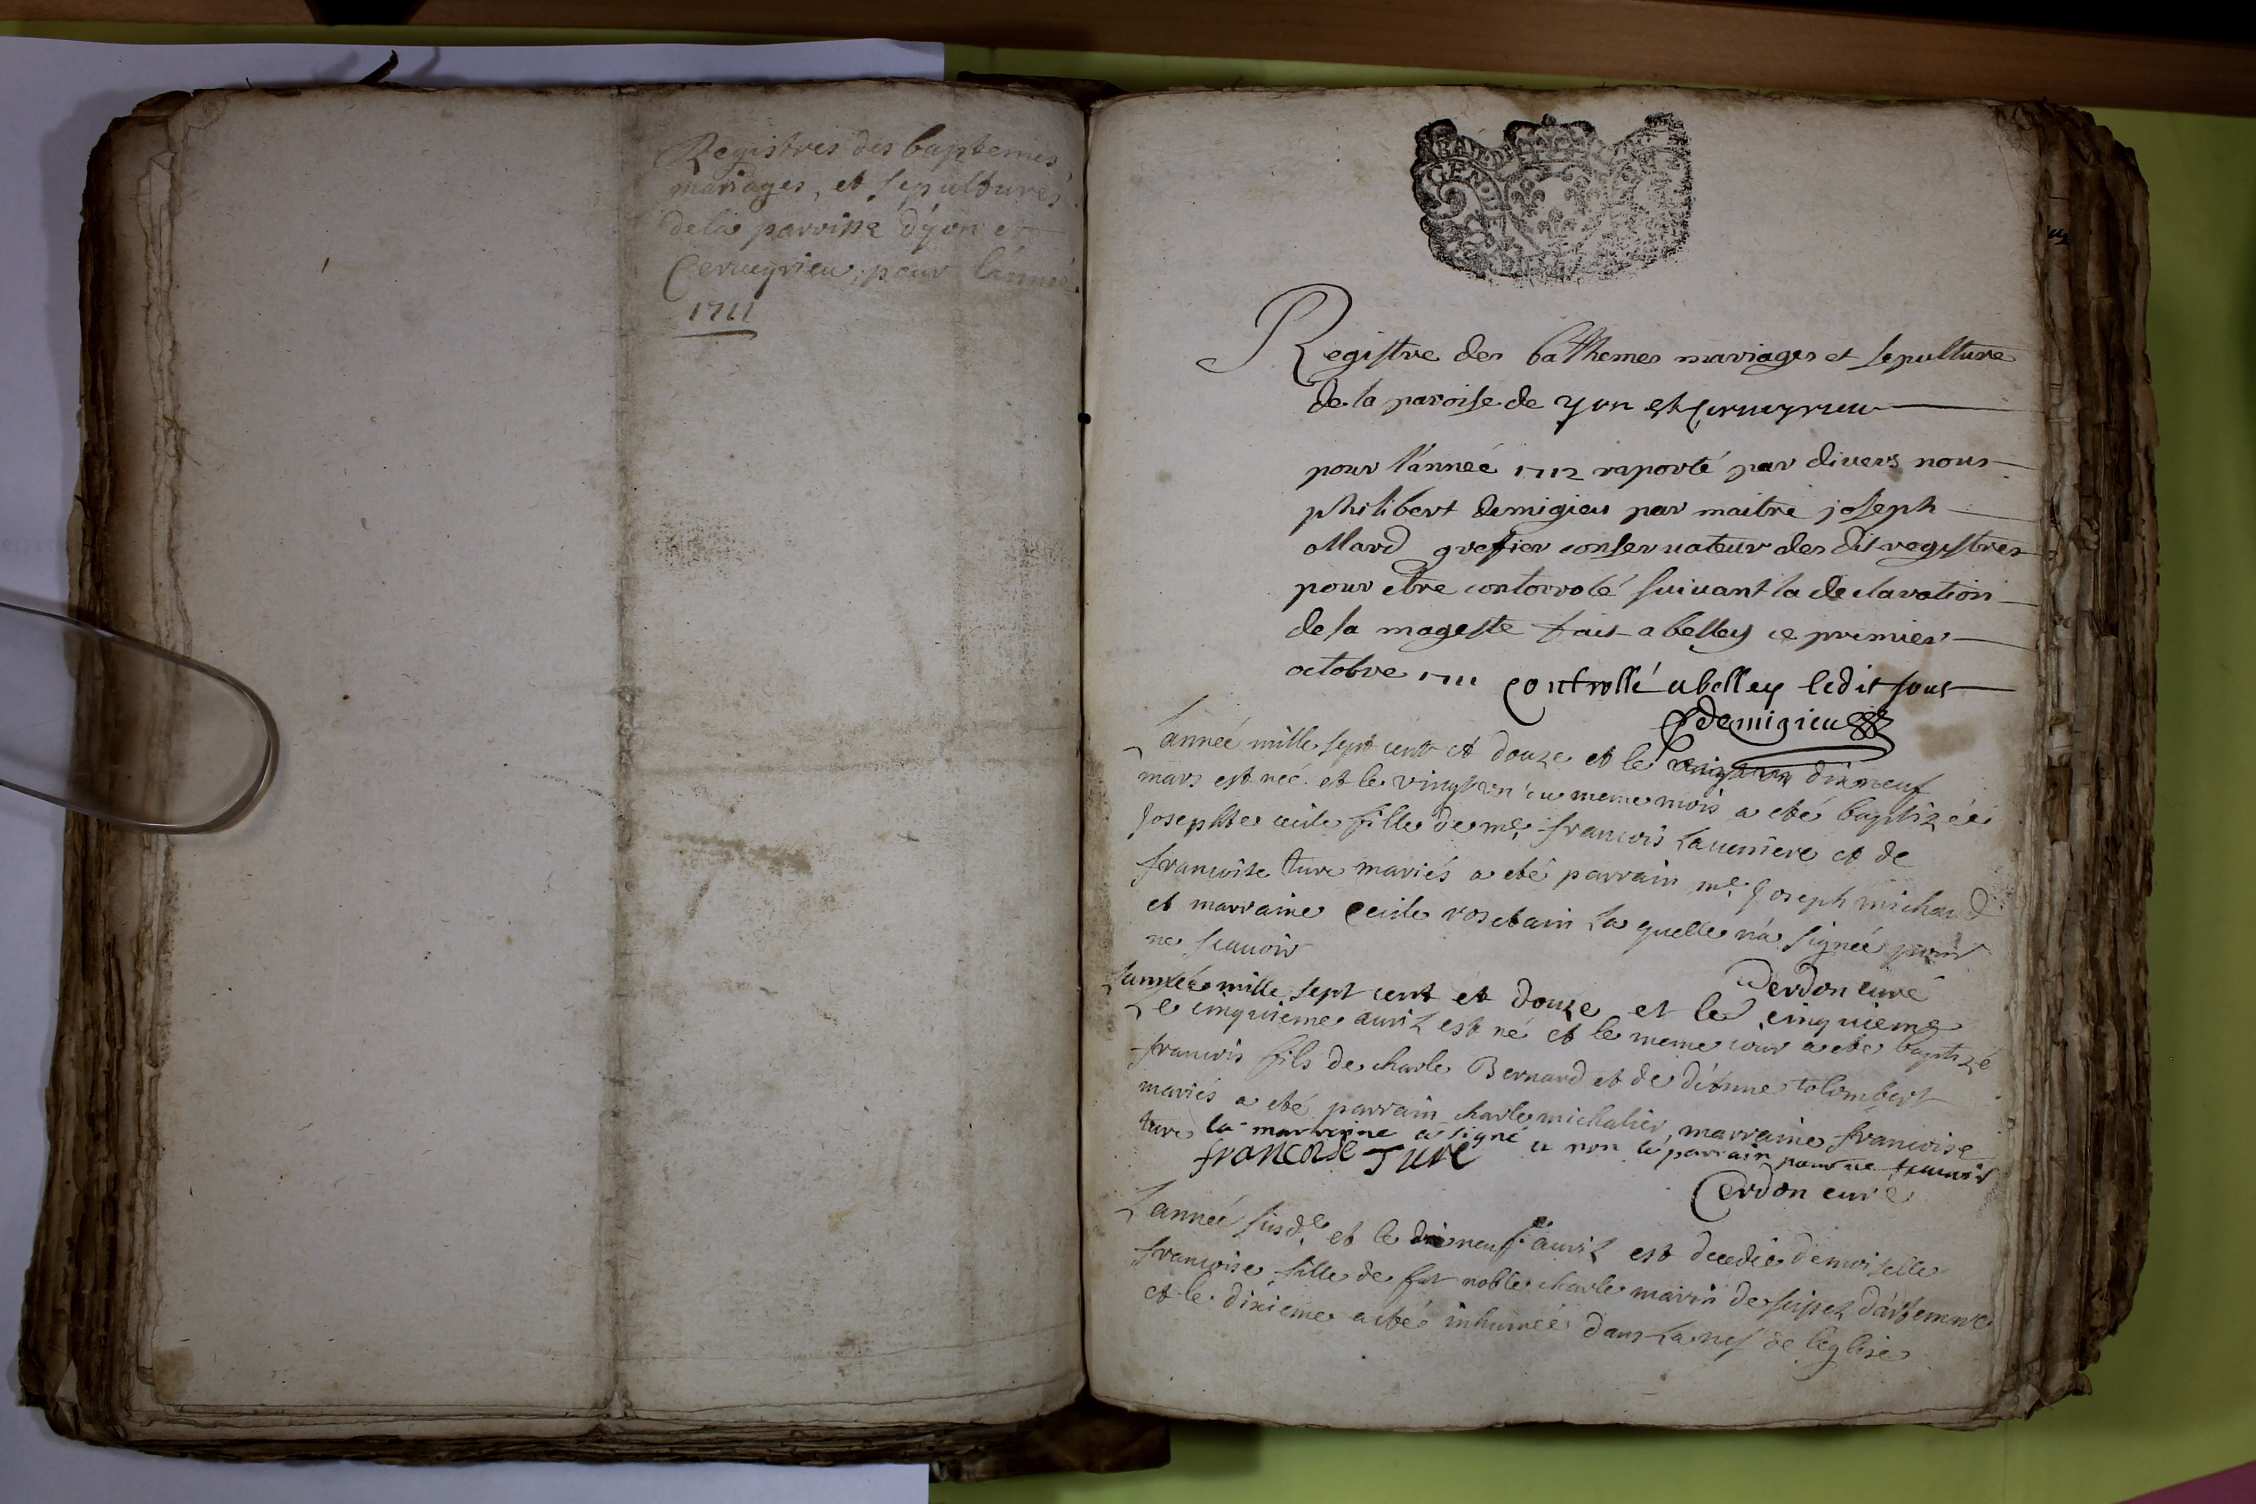 Registres des baptemes
mariages, et sepultures
de la paroisse d'yon et
Cerueyrieu, pour l'année
1711
GEN
Registre des bathemes mariages et sepulture
de la paroise de yon et Cerueyrieu
pour l'année 1712 raporté par divers nous
philibert demigieu par maitre joseph
allard grefier conseruateur des dit registres
pour etre contorrolé suiuant la declaration
de sa mageste fait a belley ce premier
octobre 1711 controllé a belley ledit jour
demigieu
L'année mille sept cent et douze et le dixneuf
mars est neé et le vingt un du meme mois a eté baptizée
Josephte cecile fille de me. francois Lauerriere et de
francoise ture mariés a eté parrain me. Joseph michaud
et marraine Cecile rosetain la quelle n'a signée pour
ne scauoir
Cerdon curé
L'année mille sept cent et douze et le cinquieme
Le cinquieme auril est né et le meme jour a eté baptizé
francois fils de charle Bernard et de colombert
mariés a eté parrain charle michalier, marraine francoise
ture la marraine a signé et non le parrain pour ne scauoir
francoise Ture
Cerdon curé
L'année susd.e et le neuf auril est decedée demoiselle
francoise fille de fut noble charle marin de seissel d'artemare
et le dixieme a eté inhumée dans la nef de l'eglise